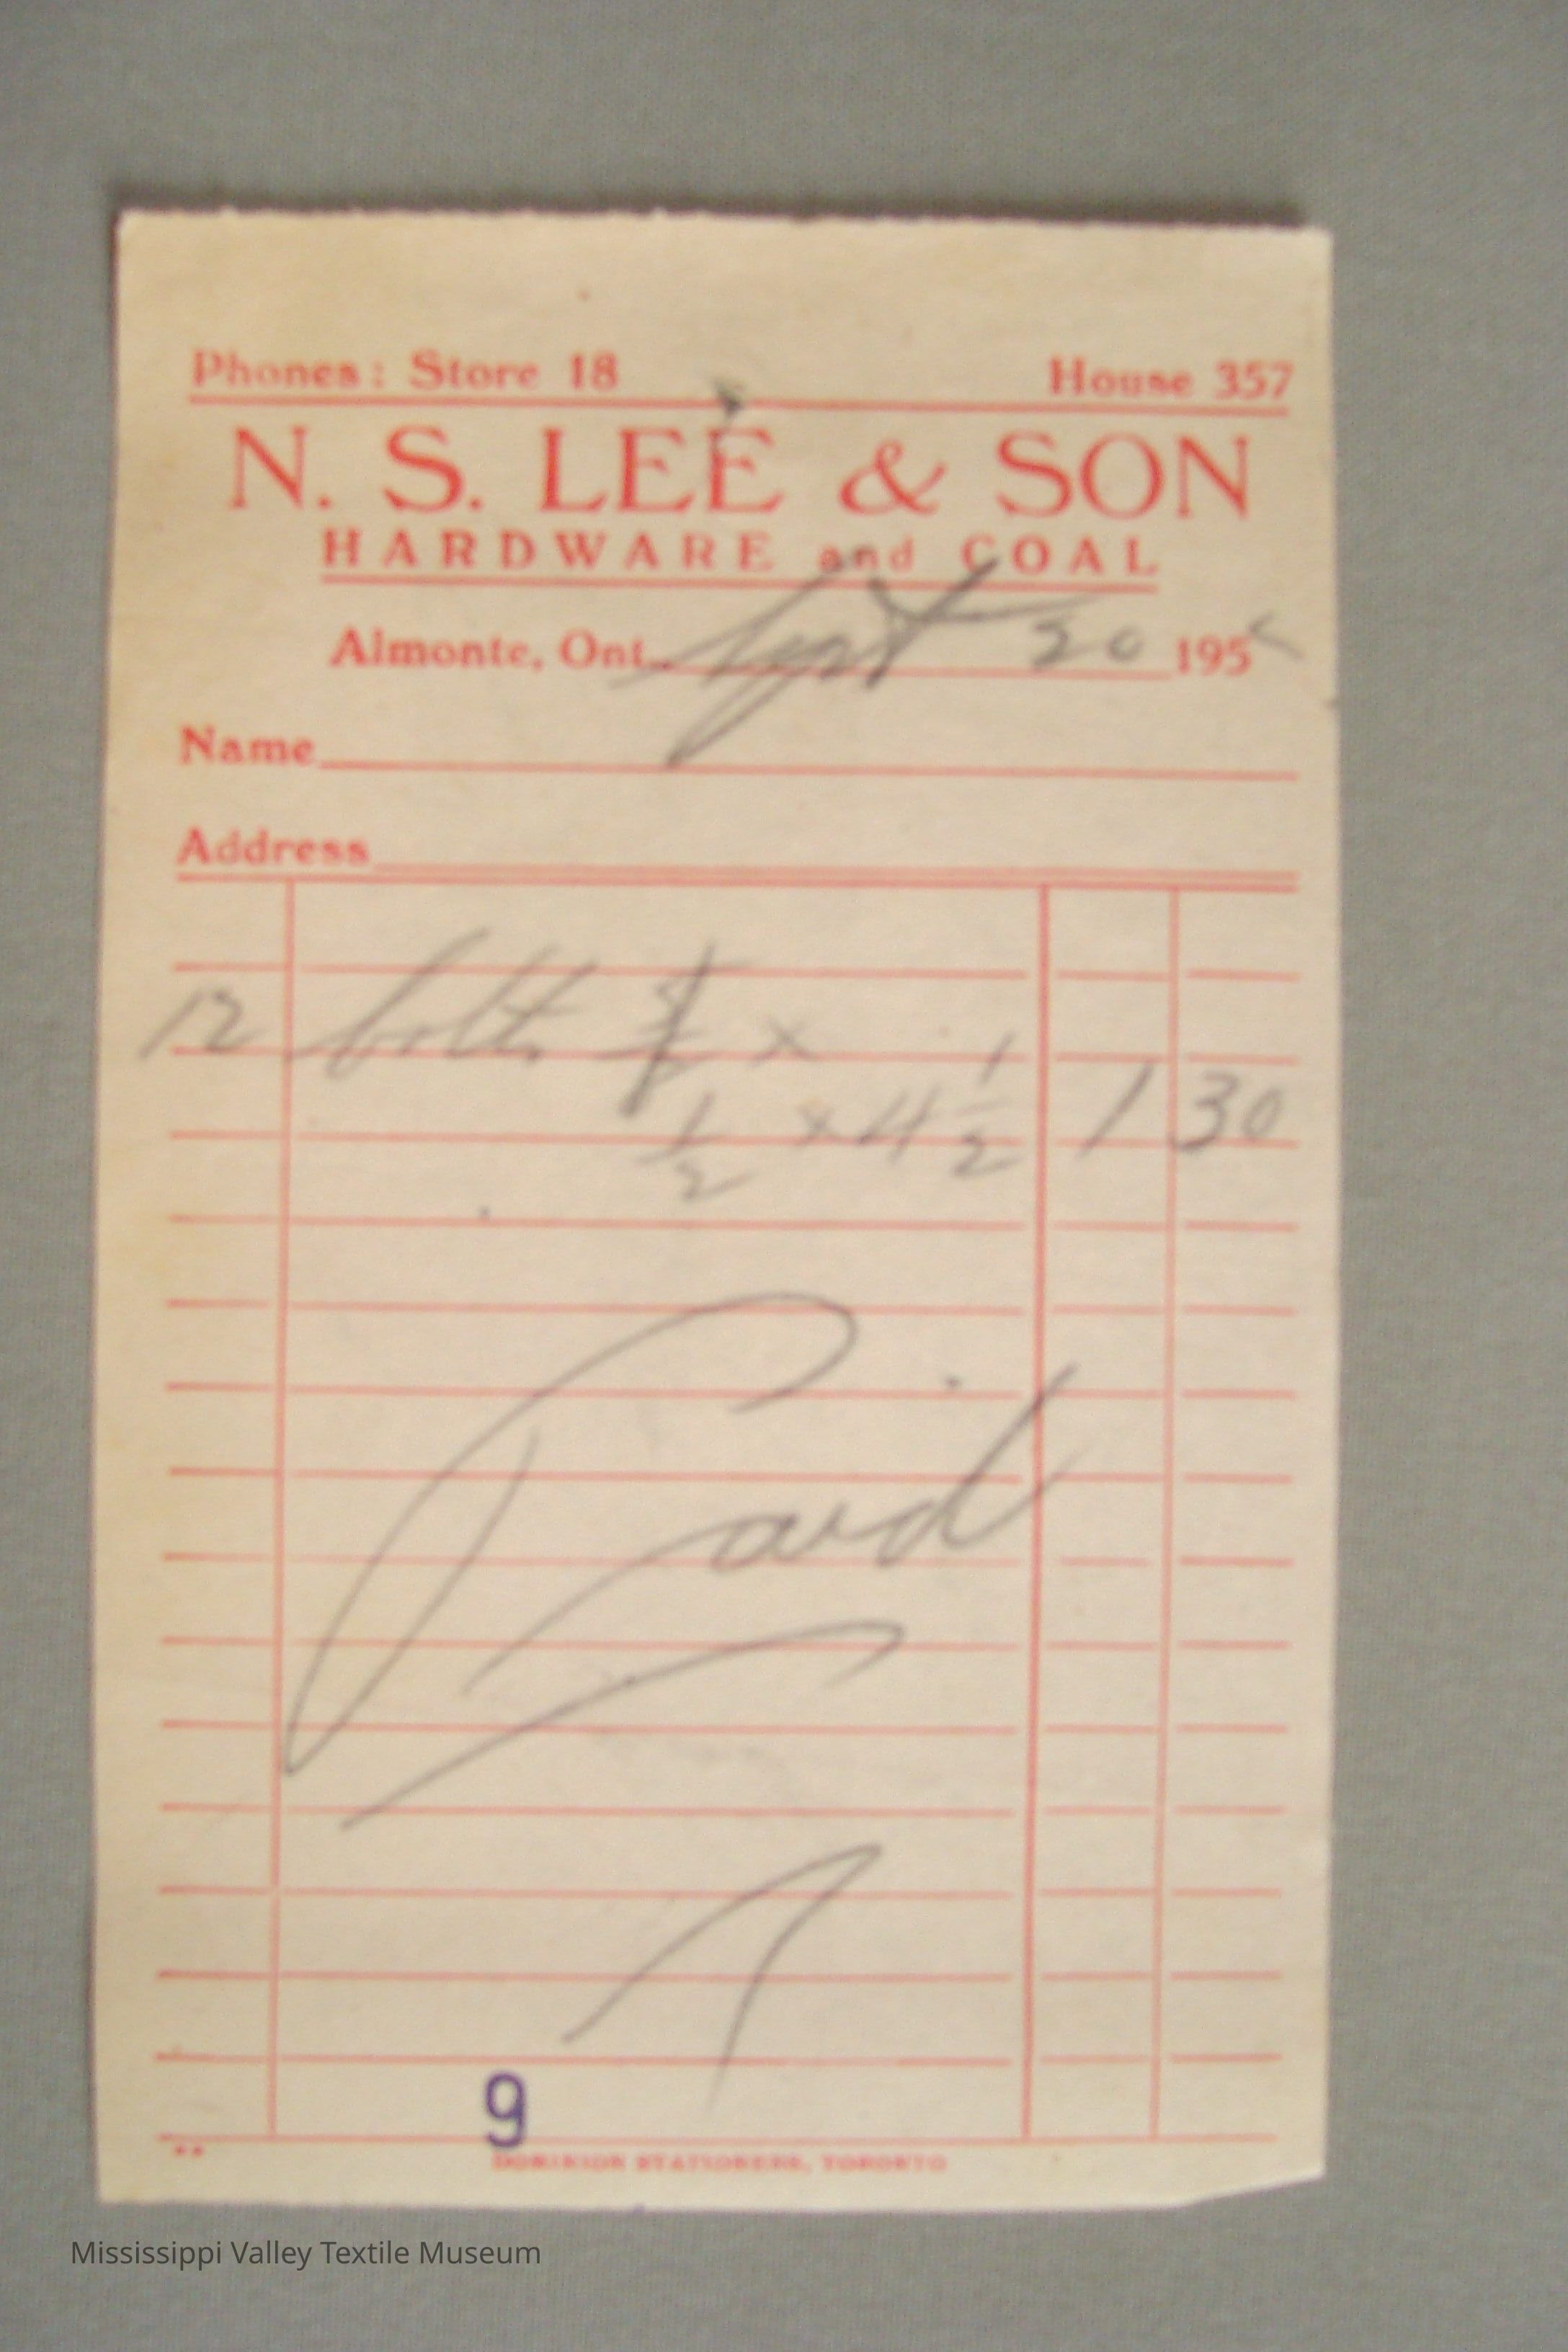 Phones: Store 18 House 357
N. S. LEE & SON
HARDWARE and COAL
Almonte, Ont. Sept 20 195
Name
Address
12 bolts x
1/2 x 4 1/2 1 30
Paid
9
DOMINION STATIONERS, TORONTO
Mississippi Valley Textile Museum